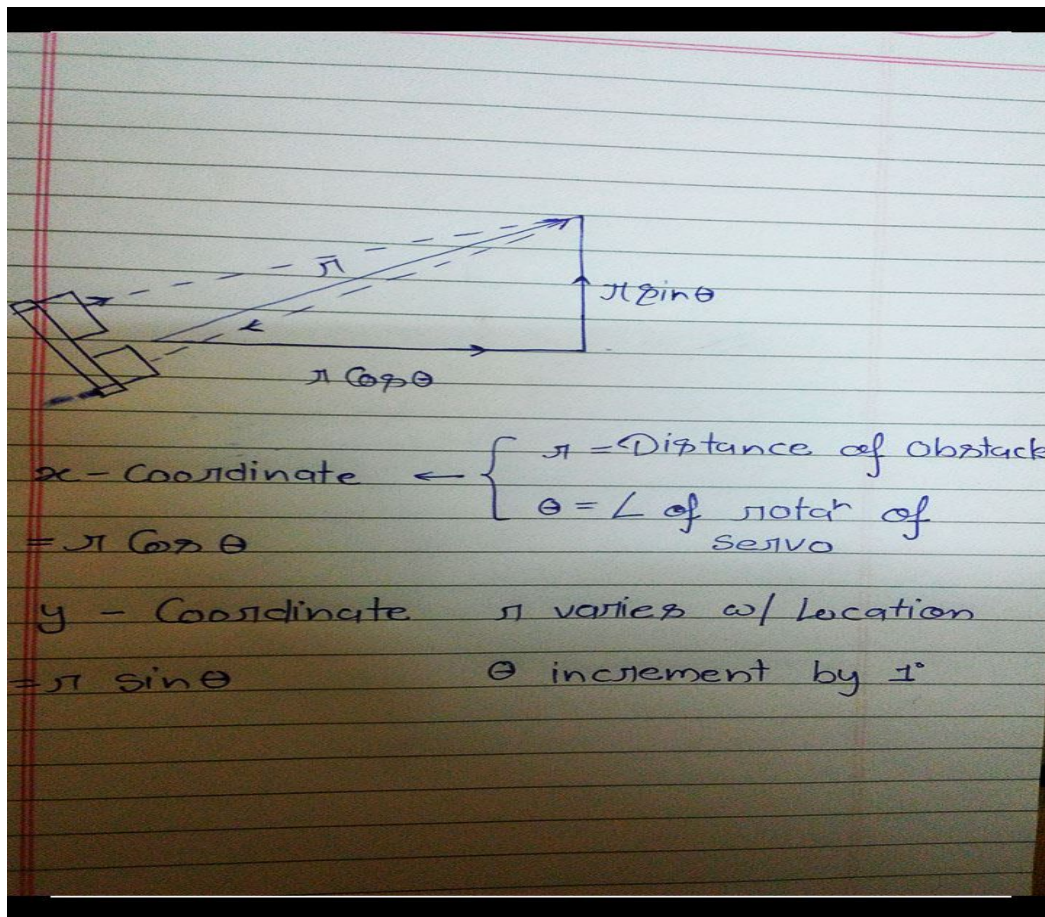 r
r sinθ
r Cosθ
x - Coordinate ← { r = Distance of Obstack
θ = ∠ of rotaⁿ of
= r Cos θ
servo
y - Coordinate r varies w/ Location
= r sinθ θ increment by 1°